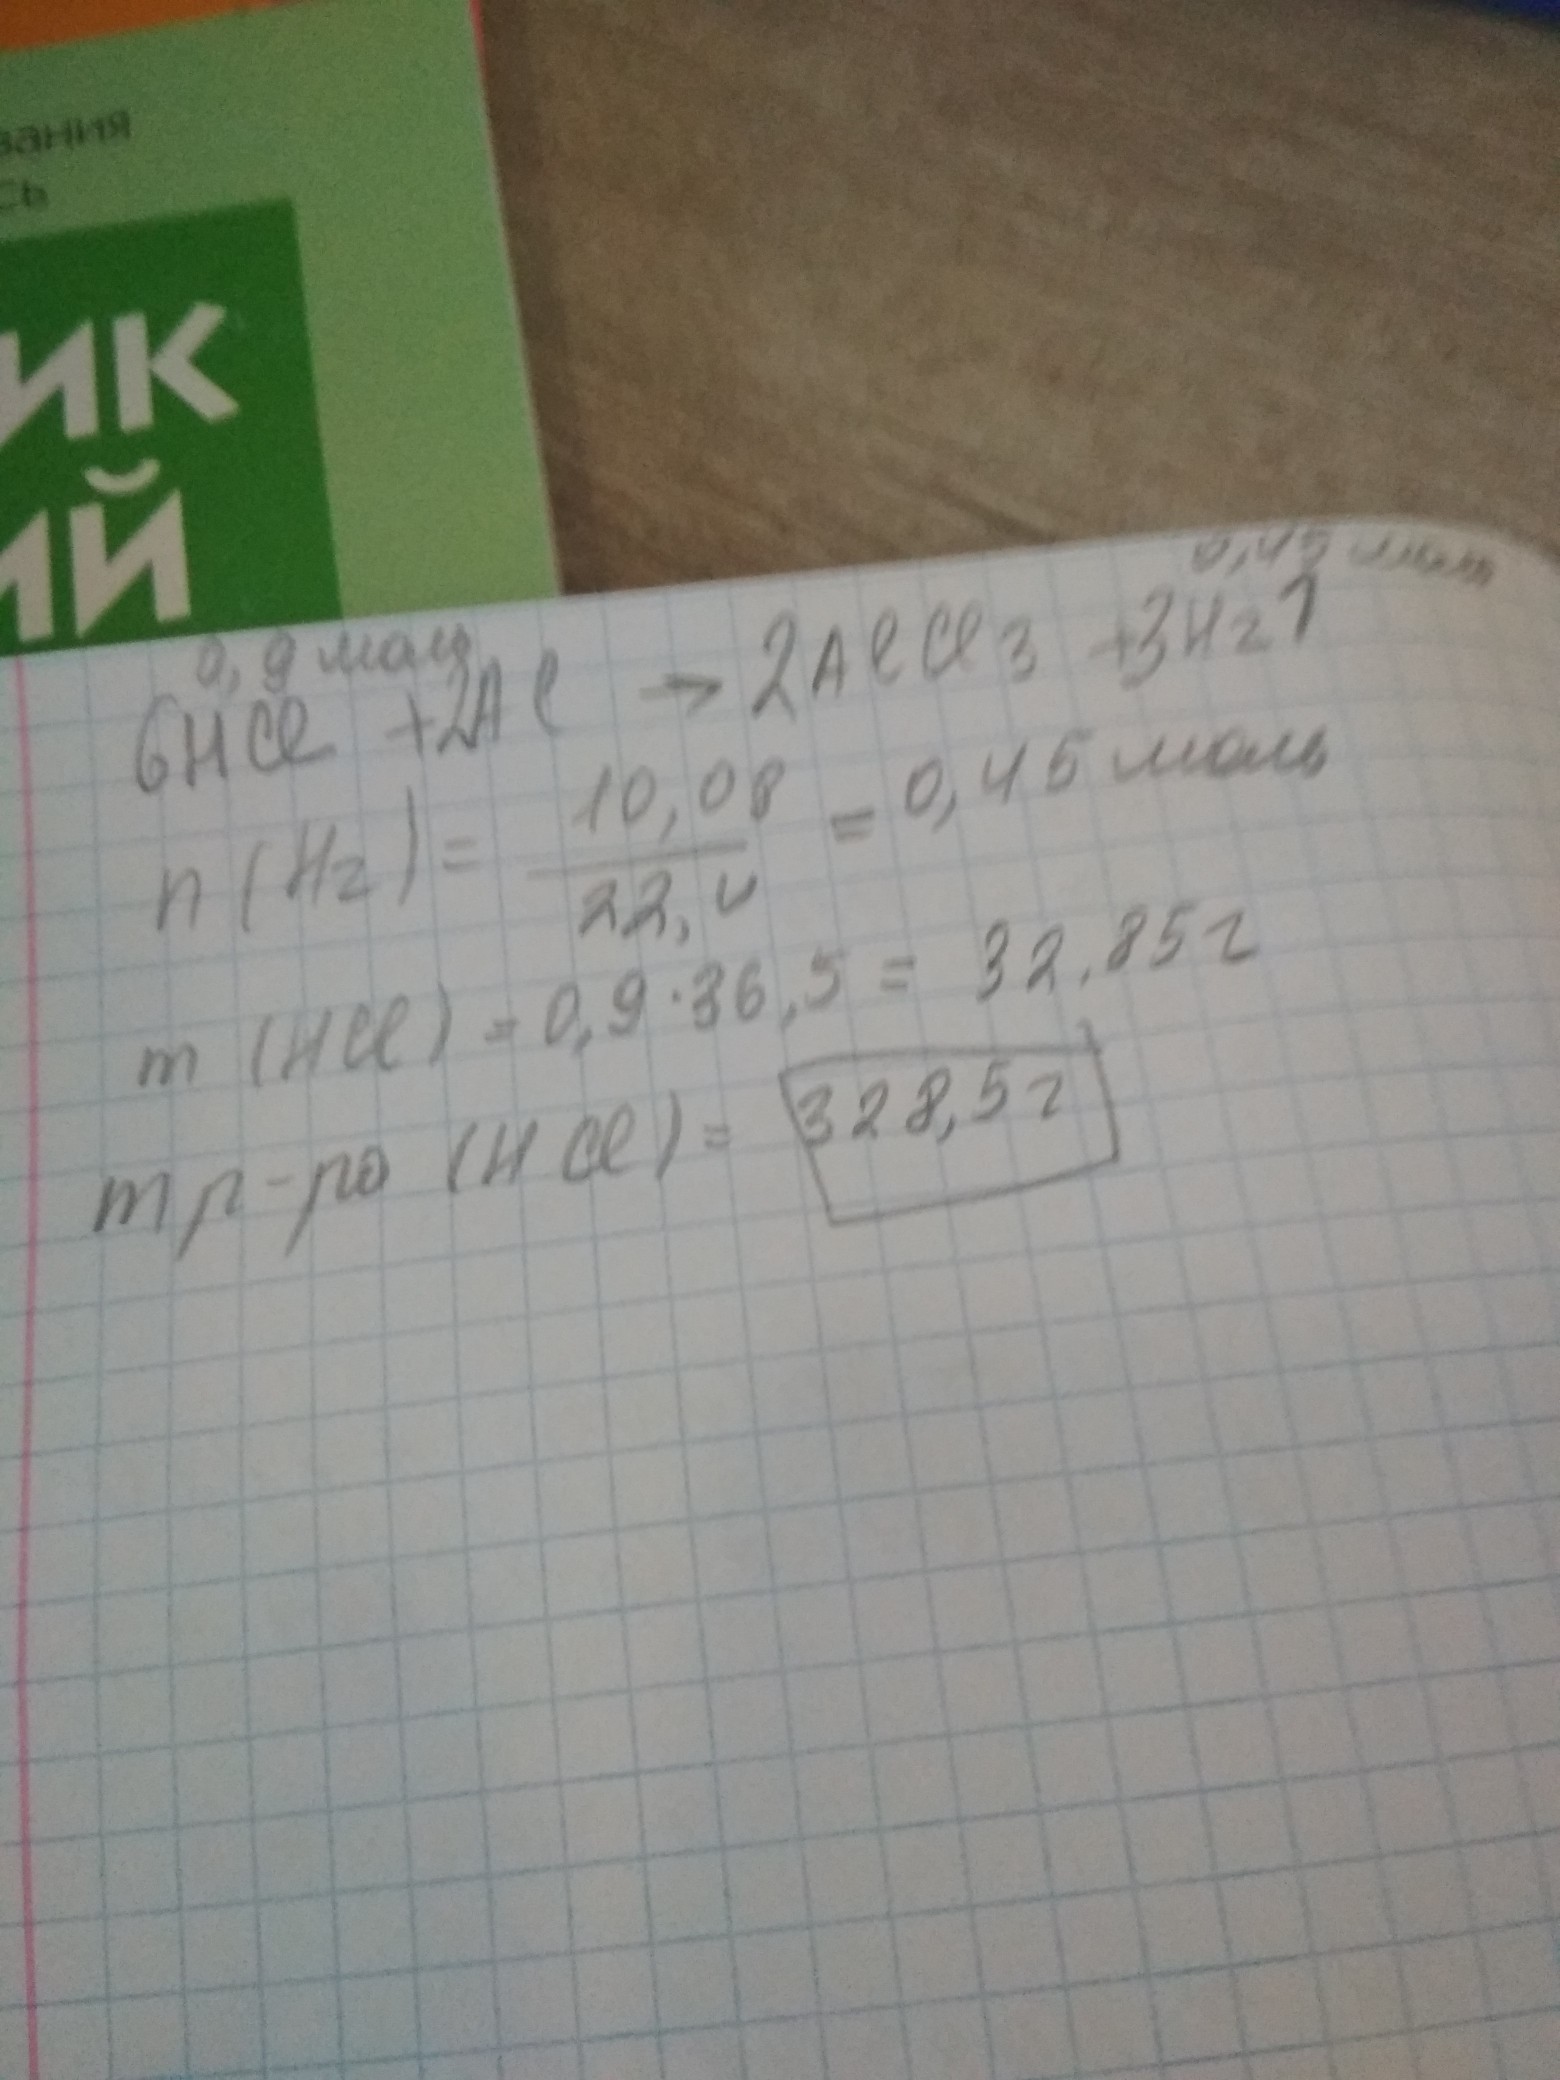 вания
сь
ик
ий
0,45 моль
0,9 моль
6HCl + 2Al → 2AlCl3 + 3H2↑
n(H2) = 10,08 / 22,4 = 0,45 моль
m (HCl) = 0,9·36,5 = 32,85г
m р-ра (HCl) = 328,5г